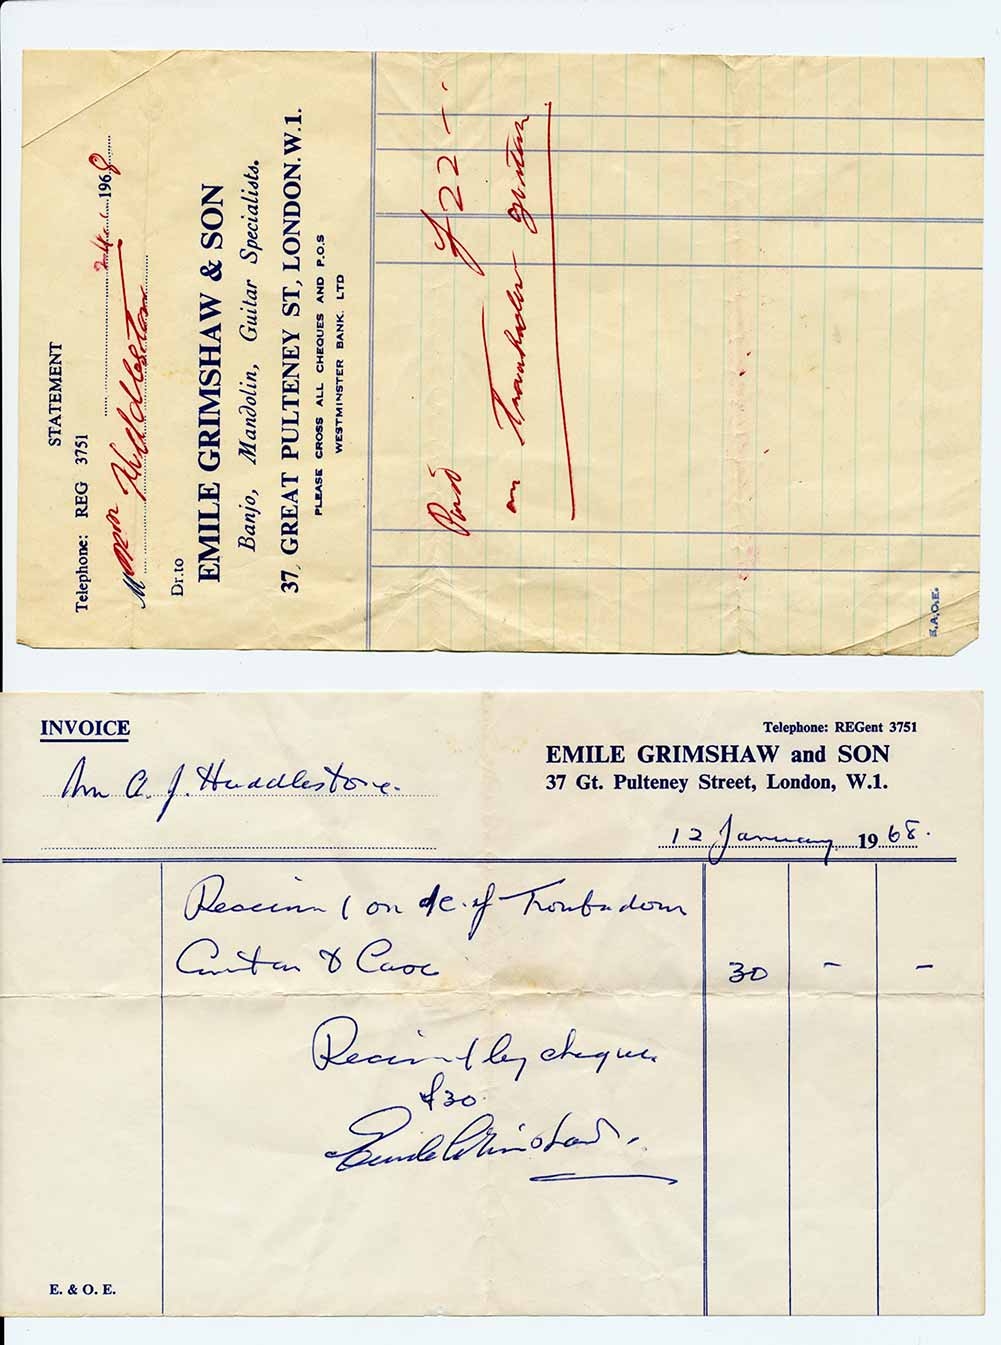 STATEMENT
Telephone: REG 3751
24 1 1968
M Huddlestone
Dr.to
EMILE GRIMSHAW & SON
Banjo, Mandolin, Guitar Specialists.
37, GREAT PULTENEY ST, LONDON.W.1.
PLEASE CROSS ALL CHEQUES AND P.O.S
WESTMINSTER BANK. LTD
Paid £22 - .
on Troubador guitar
E.&O.E.
INVOICE
Telephone: REGent 3751
EMILE GRIMSHAW and SON
37 Gt. Pulteney Street, London, W.1.
Mr A. J. Huddlestone.
12 January 1968.
Received on a/c. of Troubadour
Guitar & Case 30 - -
Received by cheque
£30.
Emile Grimshaw.
E. & O. E.